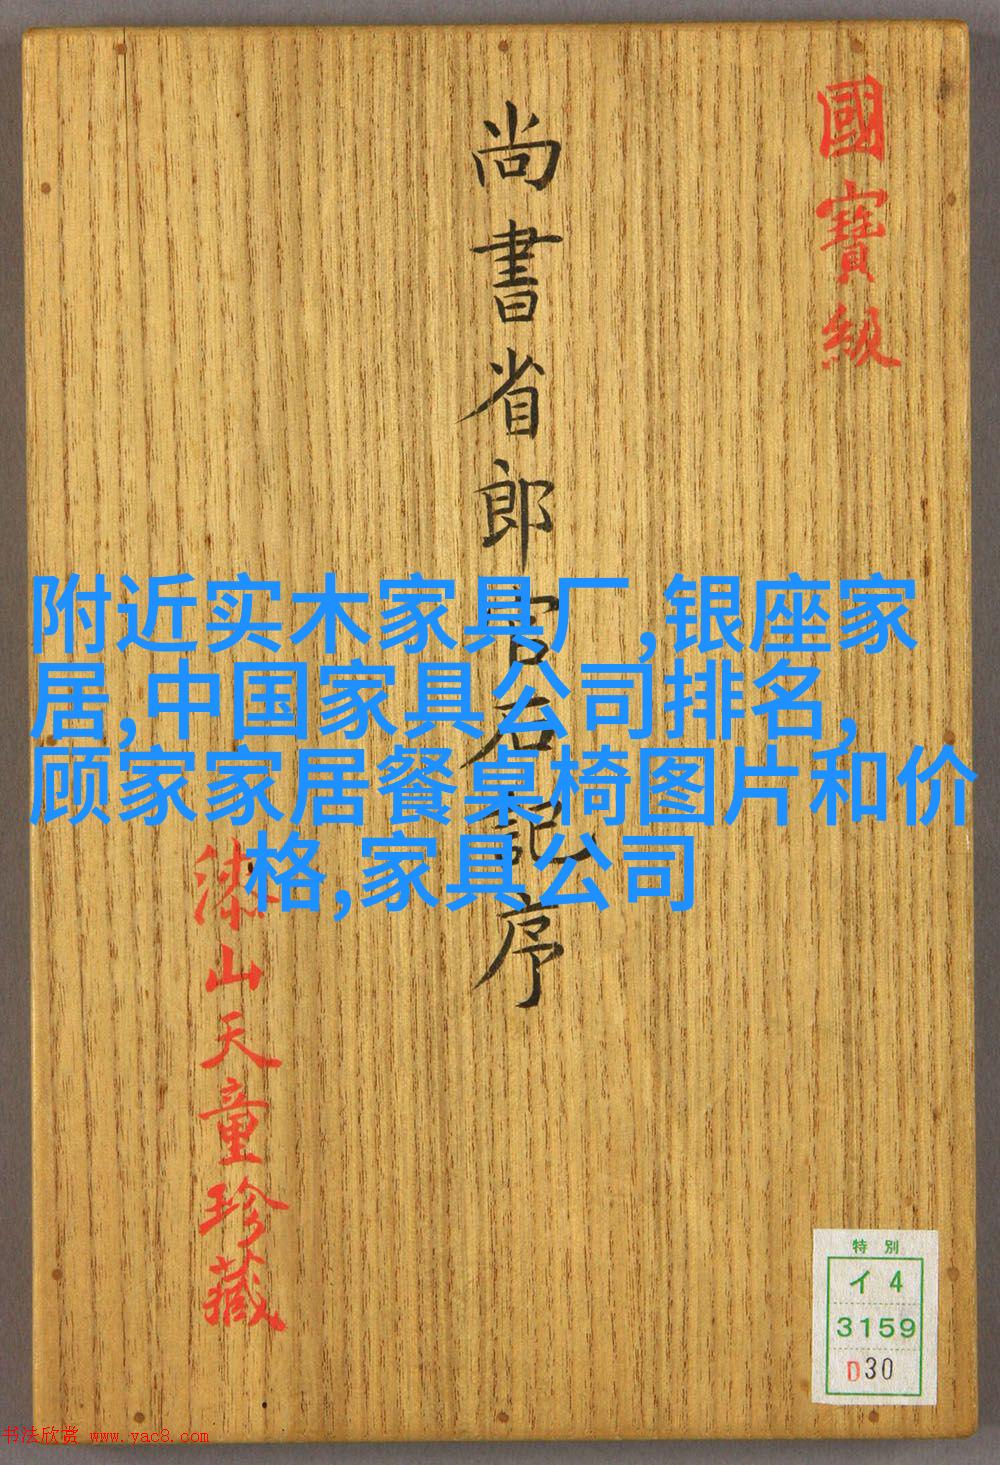 國寶級
尚書省郎官石記序
漆山天童珍藏
附近实木家具厂,银座家
居,中国家具公司排名,
顾家家居餐桌椅图片和价
格,家具公司
特別
イ4
3159
D30
书法欣赏 www.yac8.com